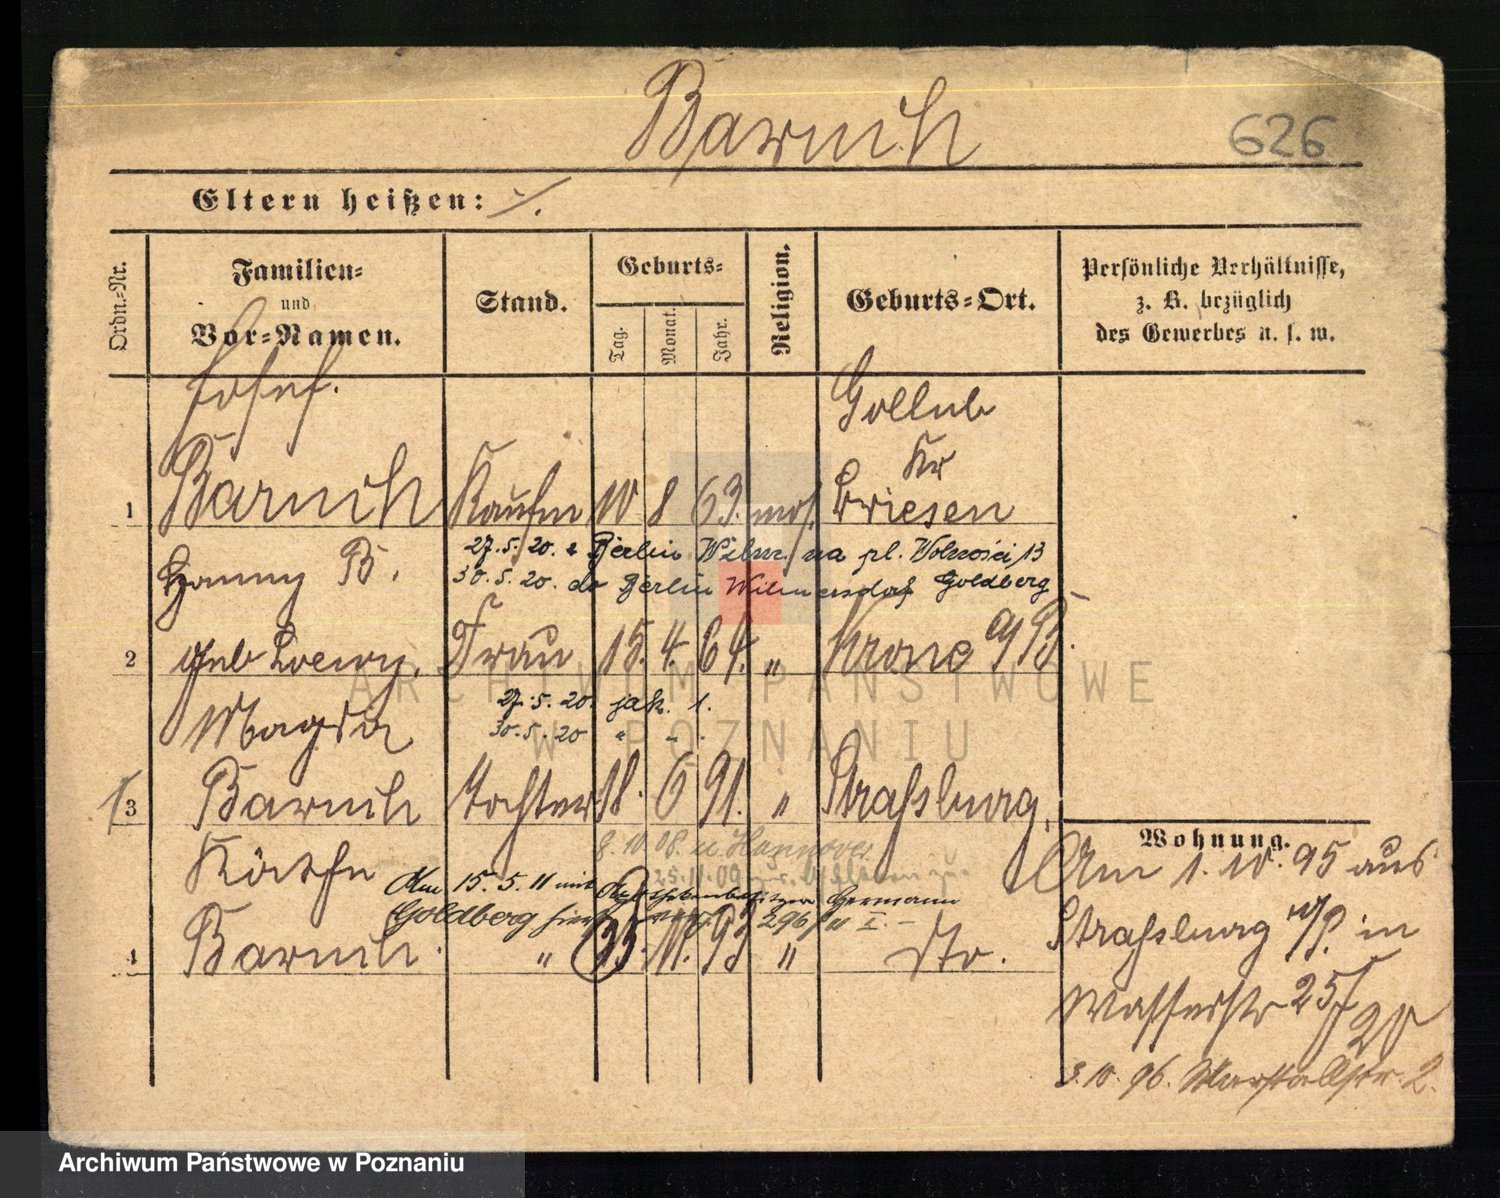 Baruch
626
Eltern heißen: ./.
Ordn.-Nr.
Familien-
und
Vor-Namen.
Stand.
Geburts-
Tag.
Monat.
Jahr.
Religion.
Geburts-Ort.
Persönliche Verhältnisse,
z. B. bezüglich
des Gewerbes u. s. w.
Josef.
Gollub
Kr
1 Baruch Kaufm 10 8 63. mos. Briesen
27.5.20. z Berlin Wilm. na pl. Wolności 13
Hanny B.
30.5.20. do Berlin Wilmersdorf Goldberg
2 geb Loewy. Frau 15. 4. 64. " Krone a/B.
27.5.20. jak 1.
Magda
30.5.20 " "
3 Baruch Tochter 18. 6 91. " Straßburg.
8.10.08. n. Hannover
Käthe
25.11.09 zur.
Am 15.5.11 mit Apothekenbesitzer Hermann
Goldberg hier verh. 296/11 I. –
4 Baruch. " 25. 11. 93 " dto.
Wohnung.
Am 1.10.95 aus
Straßburg W/P. in
Wasserstr 25/
20
3.10.96. Marstallstr. 2.
ARCHIWUM PAŃSTWOWE
W POZNANIU
Archiwum Państwowe w Poznaniu